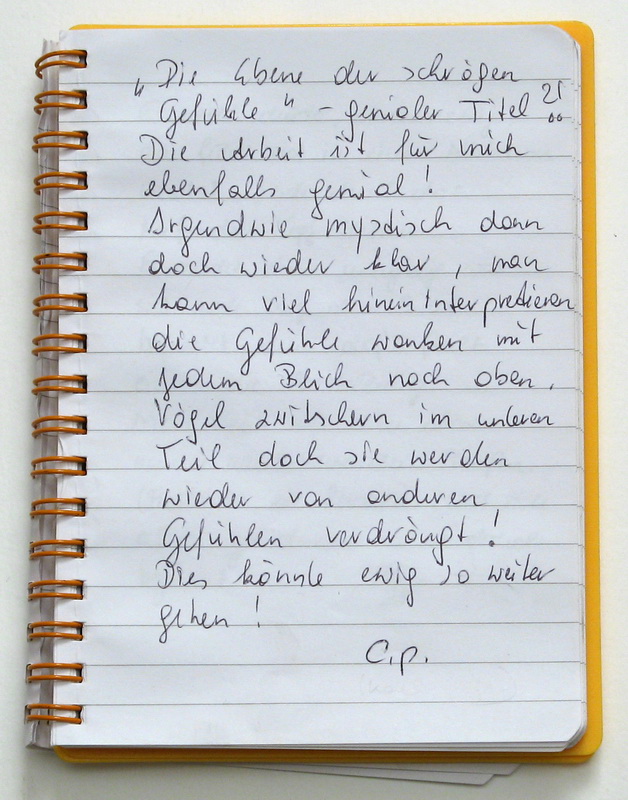 „Die Ebene der schrägen
Gefühle" - genialer Titel ?!
Die Arbeit ist für mich
ebenfalls genial!
Irgendwie mystisch dann
doch wieder klar, man
kann viel hineininterpretieren
die Gefühle wanken mit
jedem Blick nach oben.
Vögel zwitschern im unteren
Teil doch sie werden
wieder von anderen
Gefühlen verdrängt!
Dies könnte ewig so weiter
gehen!
C.p.